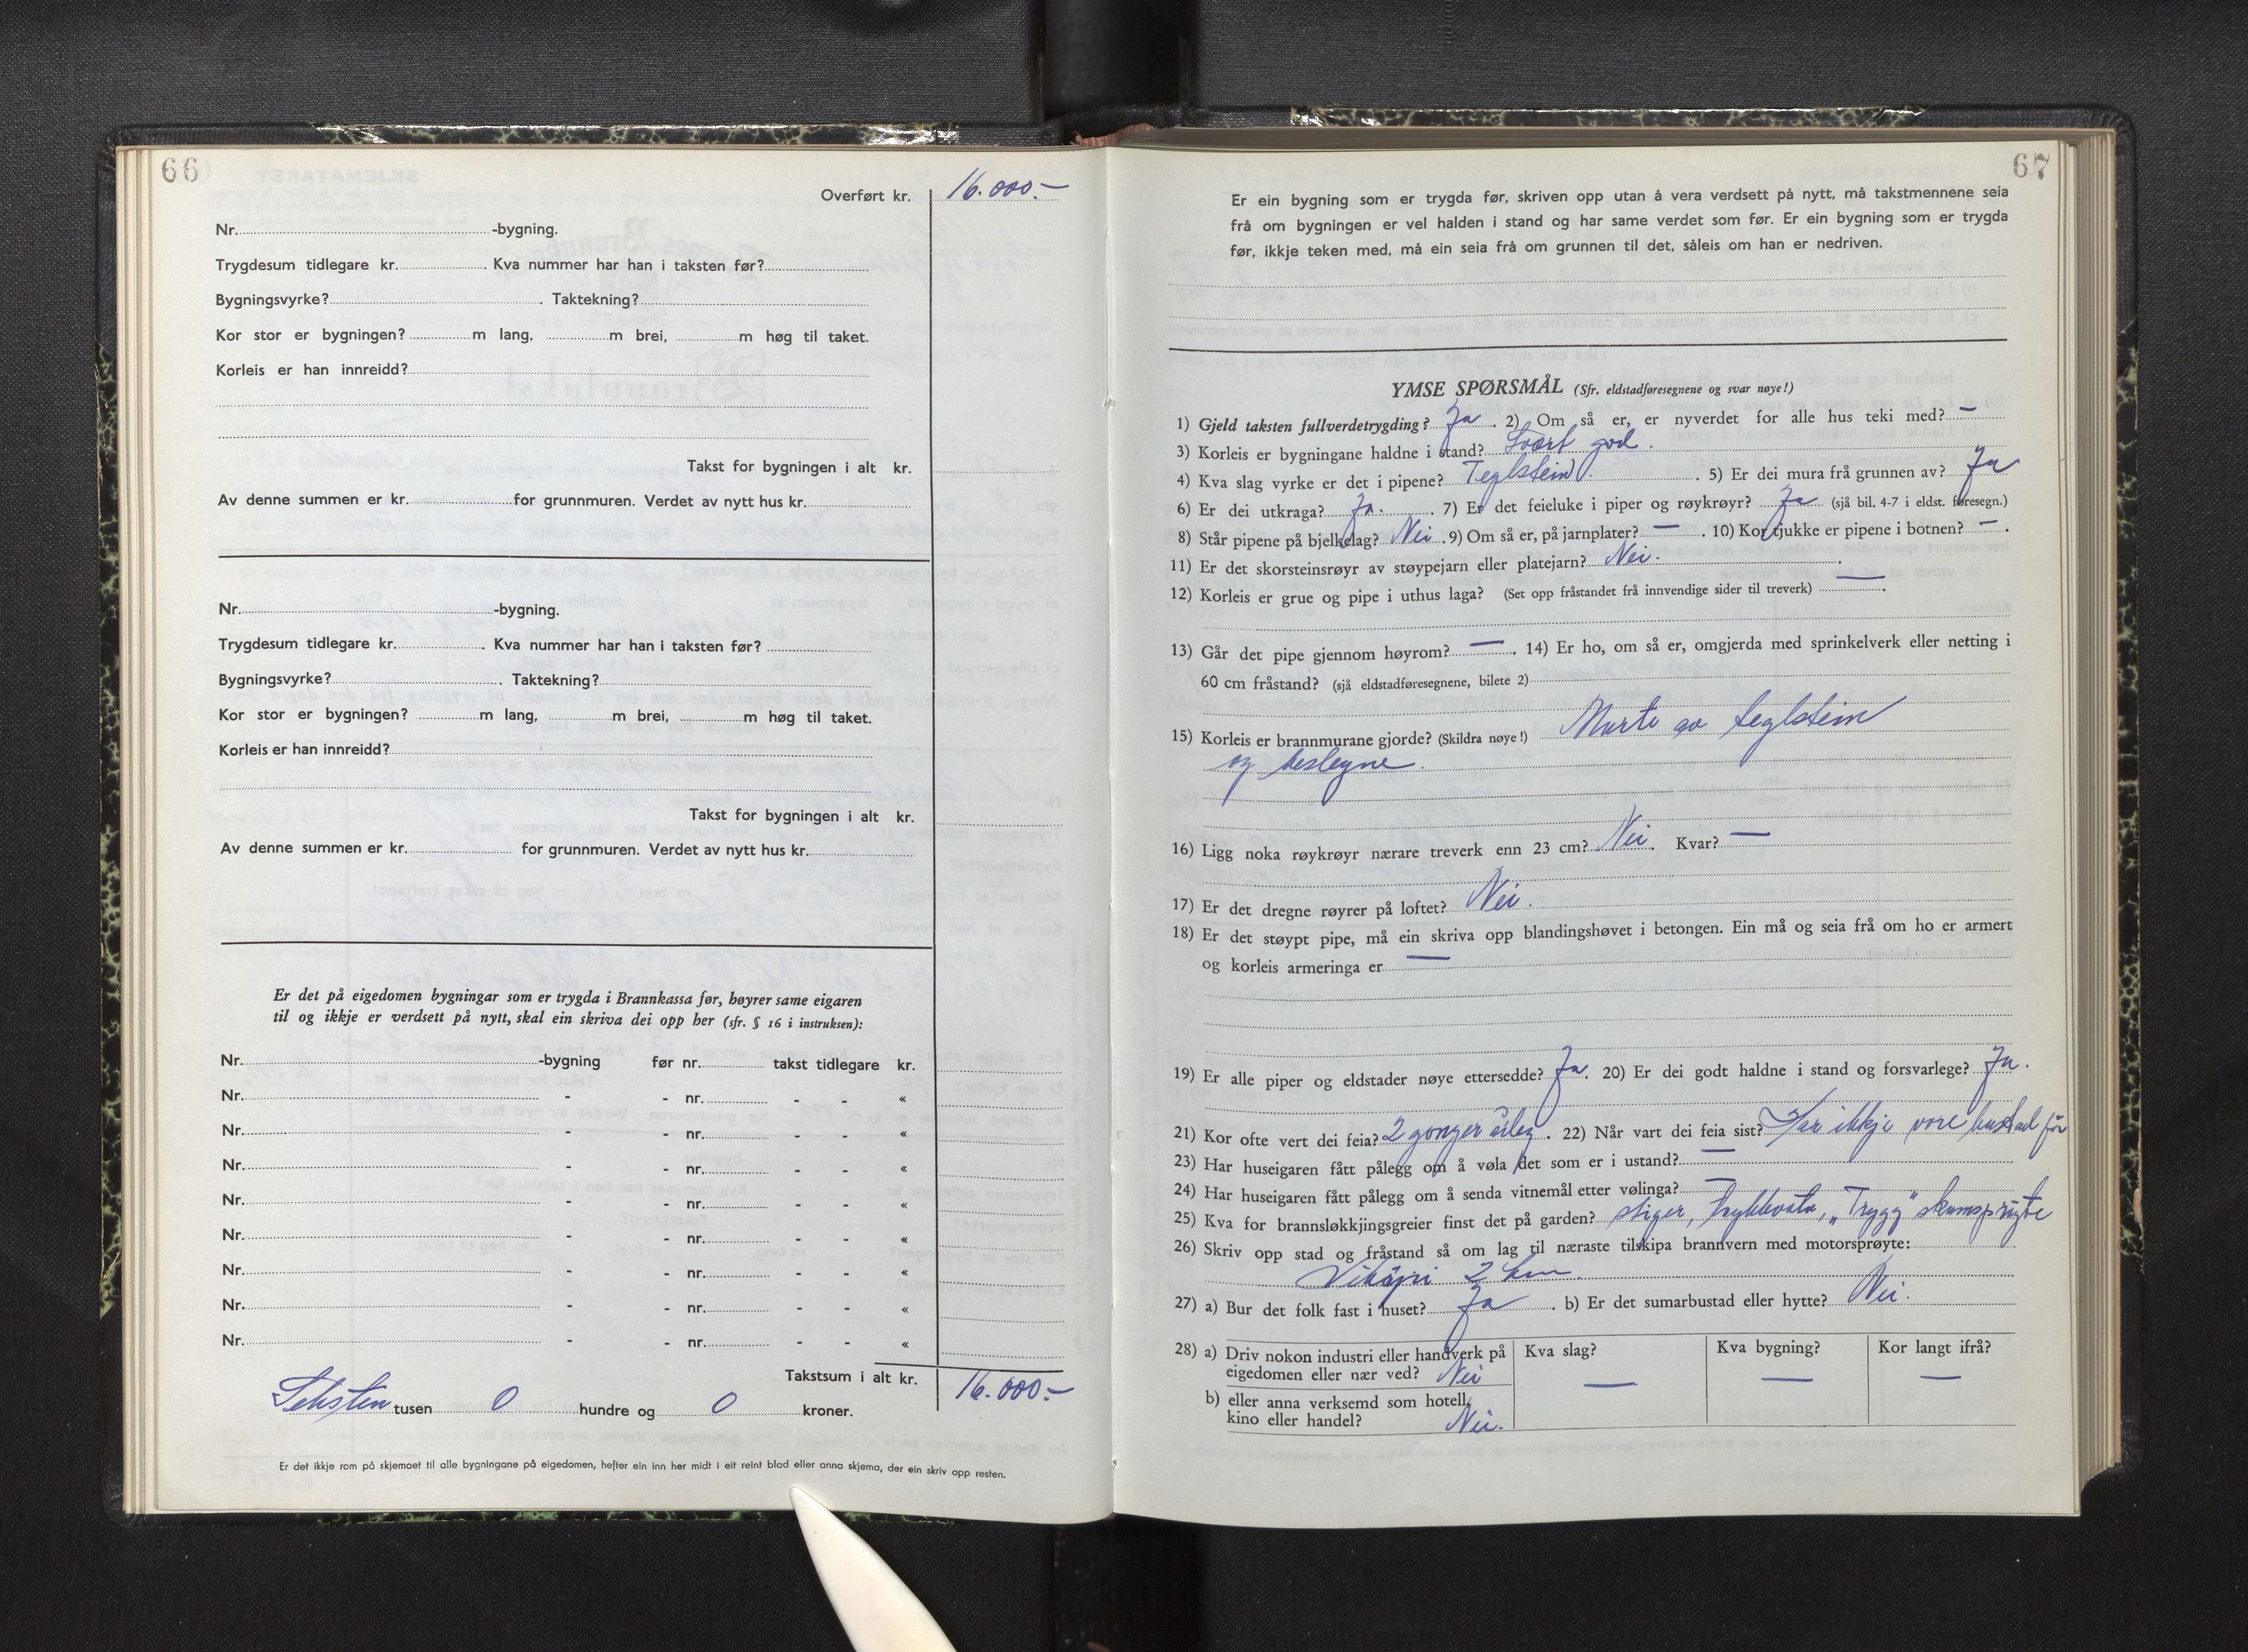 66
Overført kr. 16.000.-
Nr. -bygning.
Trygdesum tidlegare kr. . Kva nummer har han i taksten før?
Bygningsvyrke? . Taktekning?
Kor stor er bygningen? m lang, m brei, m høg til taket.
Korleis er han innreidd?
Takst for bygningen i alt kr.
Av denne summen er kr. for grunnmuren. Verdet av nytt hus kr.
Nr. -bygning.
Trygdesum tidlegare kr. . Kva nummer har han i taksten før?
Bygningsvyrke? . Taktekning?
Kor stor er bygningen? m lang, m brei, m høg til taket.
Korleis er han innreidd?
Takst for bygningen i alt kr.
Av denne summen er kr. for grunnmuren. Verdet av nytt hus kr.
Er det på eigedomen bygningar som er trygda i Brannkassa før, høyrer same eigaren
til og ikkje er verdsett på nytt, skal ein skriva dei opp her (sfr. § 16 i instruksen):
Nr. -bygning før nr. takst tidlegare kr.
Nr. - - nr. - - «
Nr. - - nr. - - «
Nr. - - nr. - - «
Nr. - - nr. - - «
Nr. - - nr. - - «
Nr. - - nr. - - «
Nr. - - nr. - - «
Nr. - - nr. - - «
Takstsum i alt kr. 16.000.-
Seksten tusen 0 hundre og 0 kroner.
Er det ikkje rom på skjemaet til alle bygningane på eigedomen, hefter ein inn her midt i eit reint blad eller anna skjema, der ein skriv opp resten.
67
Er ein bygning som er trygda før, skriven opp utan å vera verdsett på nytt, må takstmennene seia
frå om bygningen er vel halden i stand og har same verdet som før. Er ein bygning som er trygda
før, ikkje teken med, må ein seia frå om grunnen til det, såleis om han er nedriven.
YMSE SPØRSMÅL (Sfr. eldstadføresegnene og svar nøye!)
1) Gjeld taksten fullverdetrygding? Ja . 2) Om så er, er nyverdet for alle hus teki med? —
3) Korleis er bygningane haldne i stand? Svært god.
4) Kva slag vyrke er det i pipene? Teglstein . 5) Er dei mura frå grunnen av? Ja
6) Er dei utkraga? Ja. . 7) Er det feieluke i piper og røykrøyr? Ja (sjå bil. 4-7 i eldst. føresegn.)
8) Står pipene på bjelkelag? Nei . 9) Om så er, på jarnplater? — . 10) Kor tjukke er pipene i botnen? — .
11) Er det skorsteinsrøyr av støypejarn eller platejarn? Nei. .
12) Korleis er grue og pipe i uthus laga? (Set opp fråstandet frå innvendige sider til treverk) — .
13) Går det pipe gjennom høyrom? — . 14) Er ho, om så er, omgjerda med sprinkelverk eller netting i
60 cm fråstand? (sjå eldstadføresegnene, bilete 2)
15) Korleis er brannmurane gjorde? (Skildra nøye!) Murte av teglstein
og beslegne.
16) Ligg noka røykrøyr nærare treverk enn 23 cm? Nei. Kvar? —
17) Er det dregne røyrer på loftet? Nei.
18) Er det støypt pipe, må ein skriva opp blandingshøvet i betongen. Ein må og seia frå om ho er armert
og korleis armeringa er —
19) Er alle piper og eldstader nøye ettersedde? Ja. 20) Er dei godt haldne i stand og forsvarlege? Ja.
21) Kor ofte vert dei feia? 2 gonger årleg . 22) Når vart dei feia sist? Har ikkje vore bustad før
23) Har huseigaren fått pålegg om å vøla det som er i ustand? —
24) Har huseigaren fått pålegg om å senda vitnemål etter vølinga? —
25) Kva for brannsløkkjingsgreier finst det på garden? stiger, trykkvatn, „Trygg" skumsprøyte
26) Skriv opp stad og fråstand så om lag til næraste tilskipa brannvern med motorsprøyte:
Vikøyri 2 km.
27) a) Bur det folk fast i huset? Ja . b) Er det sumarbustad eller hytte? Nei.
28) a) Driv nokon industri eller handverk på eigedomen eller nær ved? Nei Kva slag? — Kva bygning? — Kor langt ifrå? —
b) eller anna verksemd som hotell,
kino eller handel? Nei.